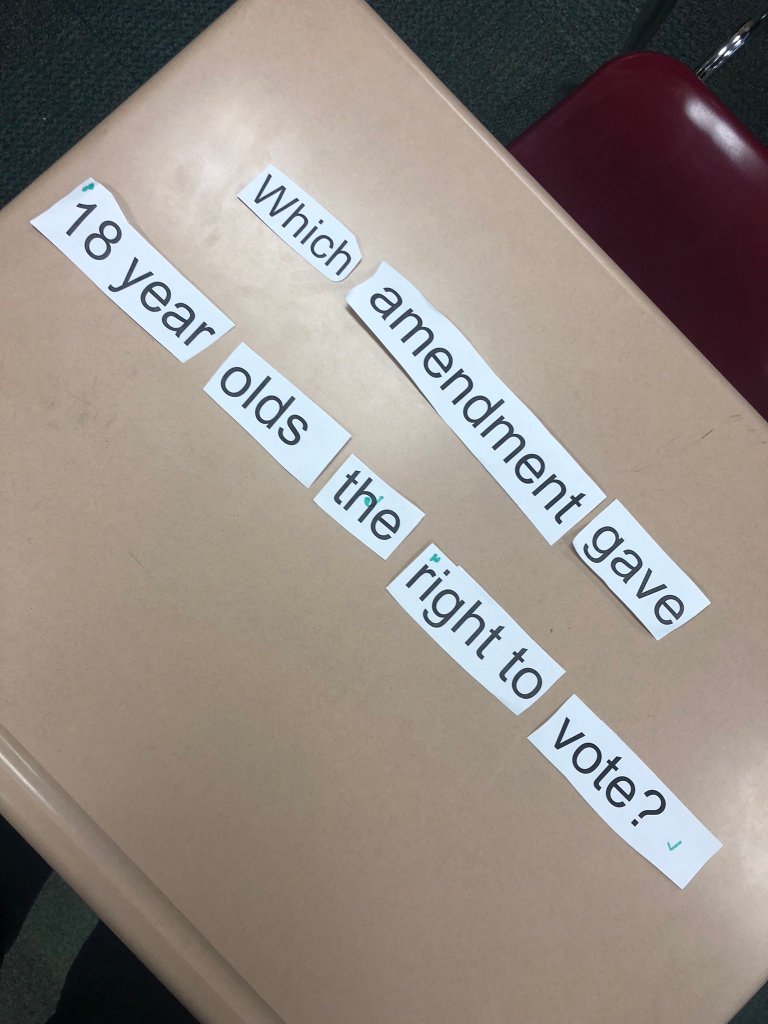 Which amendment gave
18 year olds the right to vote?